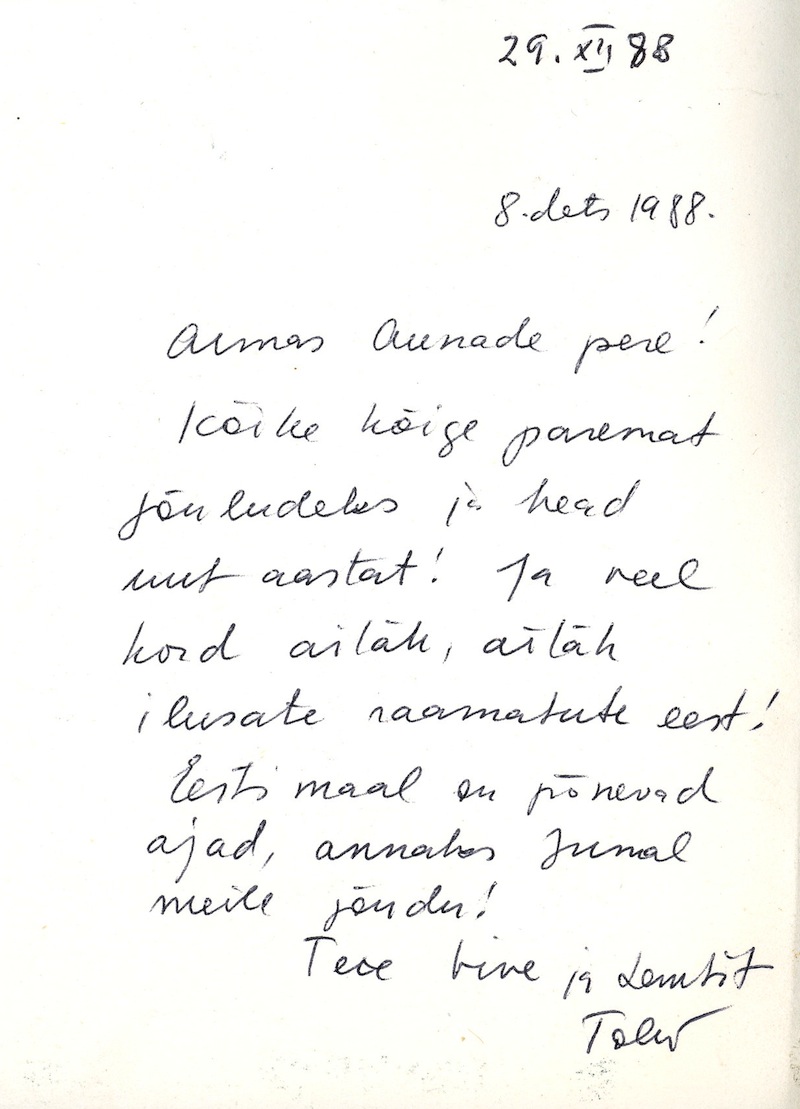 29. XII 88
8. dets 1988.
Armas Aunade pere!
Kõike kõige paremat
jõuludeks ja head
uut aastat! Ja veel
kord aitäh, aitäh
ilusate raamatute eest!
Eestimaal on põnevad
ajad, annaks Jumal
meile jõudu!
Teie Viive ja Lembit